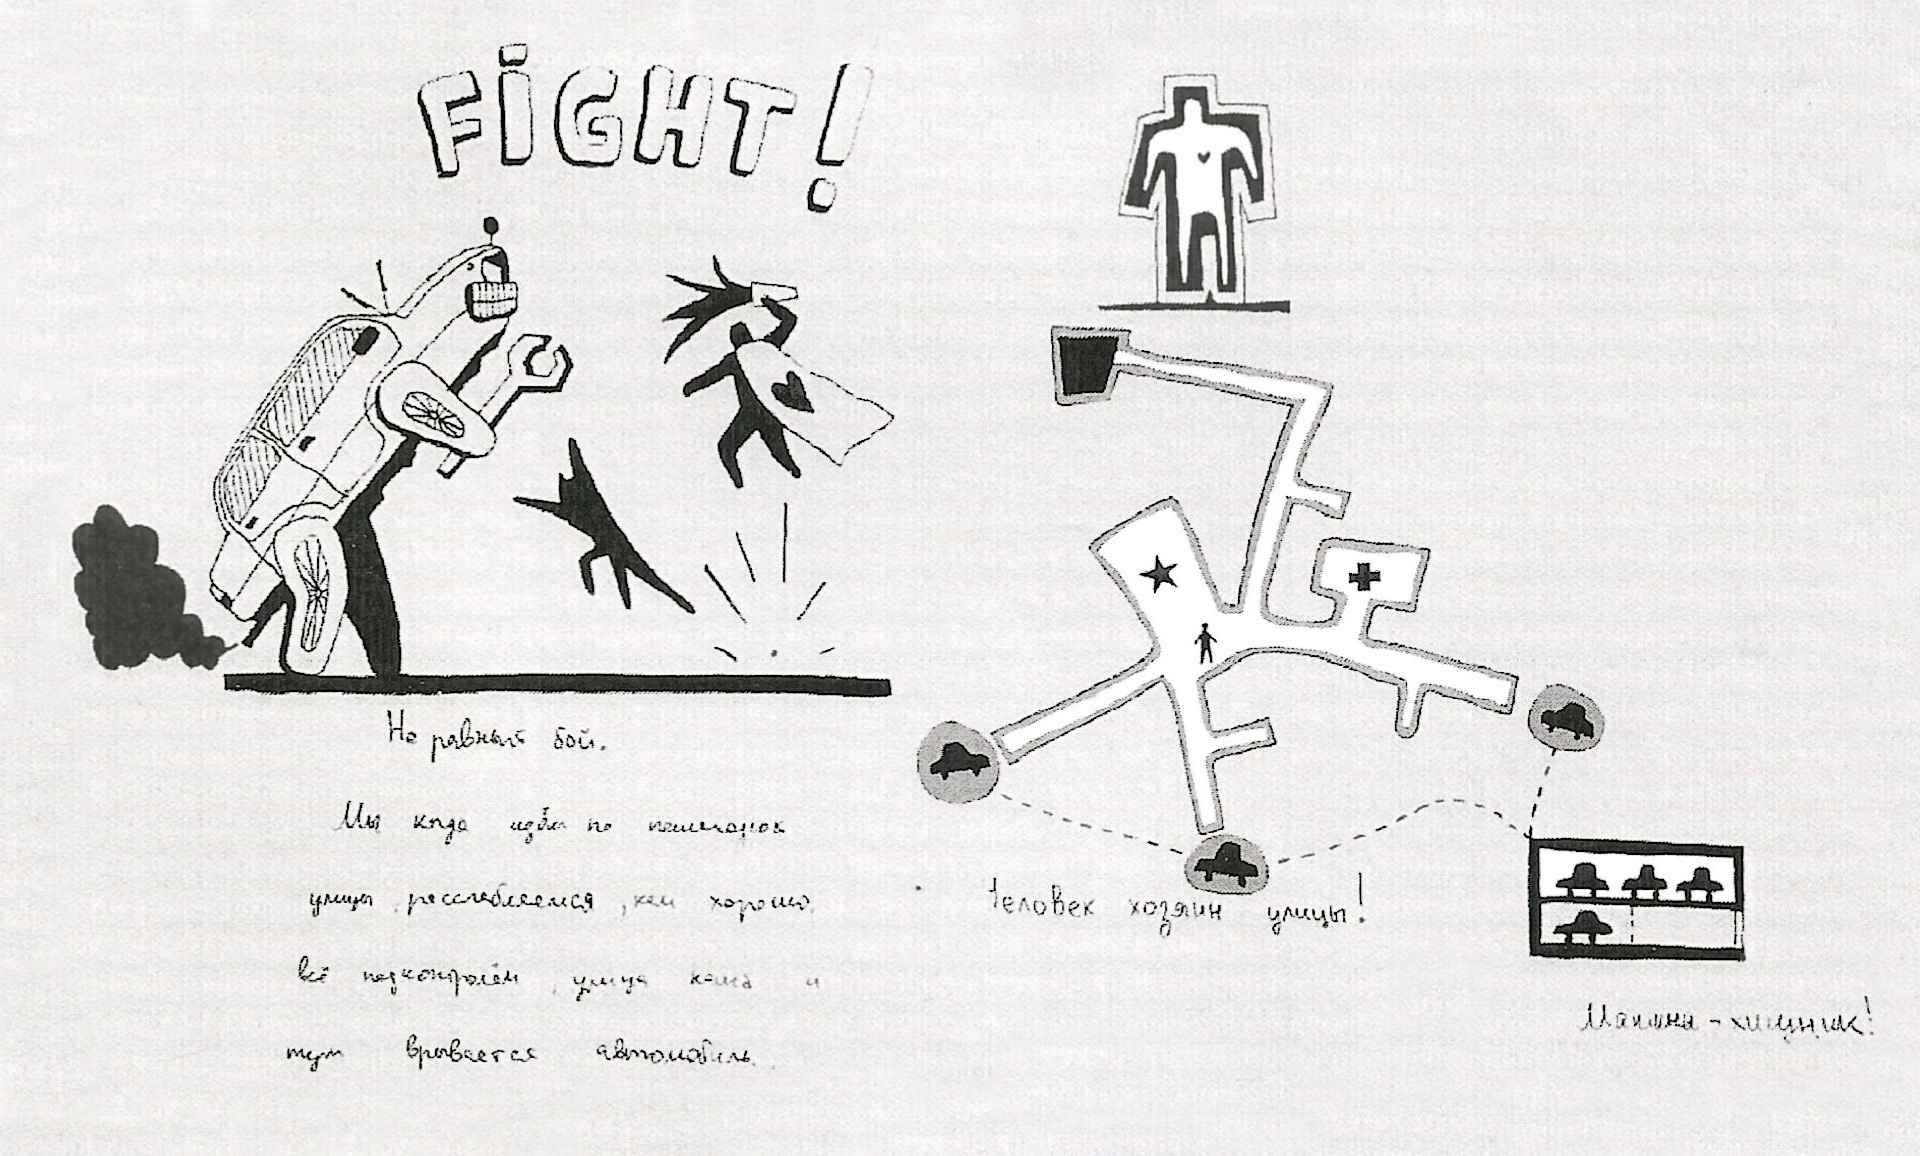 FIGHT!
Не равный бой.
Мы когда идём по пешеходок
улицы расслабляемся, нам хорошо,
всё подконтролем, улица наша и
тут врывается автомобиль.
Человек хозяин улицы!
Машина - хищник!